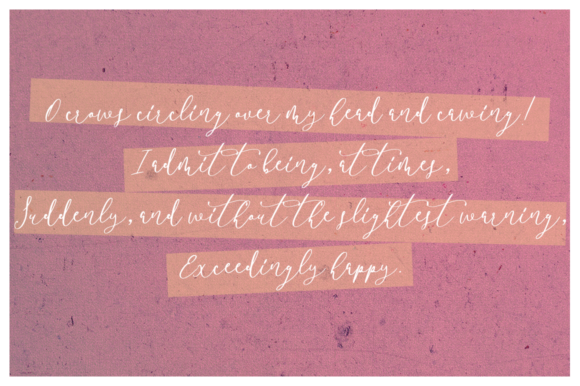 O crows circling over my head and cawing!
I admit to being, at times,
Suddenly, and without the slightest warning,
Exceedingly happy.